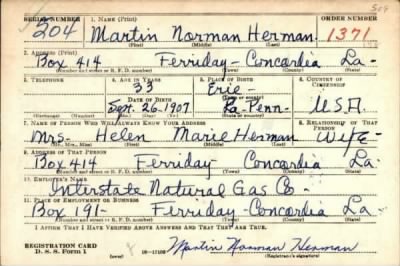 SERIAL NUMBER 1. NAME (Print) ORDER NUMBER
504
204 Martin Norman Herman 1371
(First) (Middle) (Last)
2. ADDRESS (Print)
Box 414 Ferriday- Concordia La-
(Number and street or R. F. D. number) (Town) (County) (State)
3. TELEPHONE 4. AGE IN YEARS 5. PLACE OF BIRTH 6. COUNTRY OF CITIZENSHIP
33 Erie-
DATE OF BIRTH (Town or county)
Sept. 26-1907 Penn- U.S.A.
(Mo.) (Day) (Yr.) (State or country)
7. NAME OF PERSON WHO WILL ALWAYS KNOW YOUR ADDRESS 8. RELATIONSHIP OF THAT PERSON
Mrs- Helen Marie Herman Wife-
(Mr., Mrs., Miss) (First) (Middle) (Last)
9. ADDRESS OF THAT PERSON
Box 414 Ferriday Concordia La
(Number and street or R. F. D. number) (Town) (County) (State)
10. EMPLOYER'S NAME
Interstate Natural Gas Co-
11. PLACE OF EMPLOYMENT OR BUSINESS
Box 191- Ferriday Concordia La
(Number and street or R. F. D. number) (Town) (County) (State)
I AFFIRM THAT I HAVE VERIFIED ABOVE ANSWERS AND THAT THEY ARE TRUE.
REGISTRATION CARD
D. S. S. Form 1 16-17105 Martin Norman Herman
(Registrant's signature)